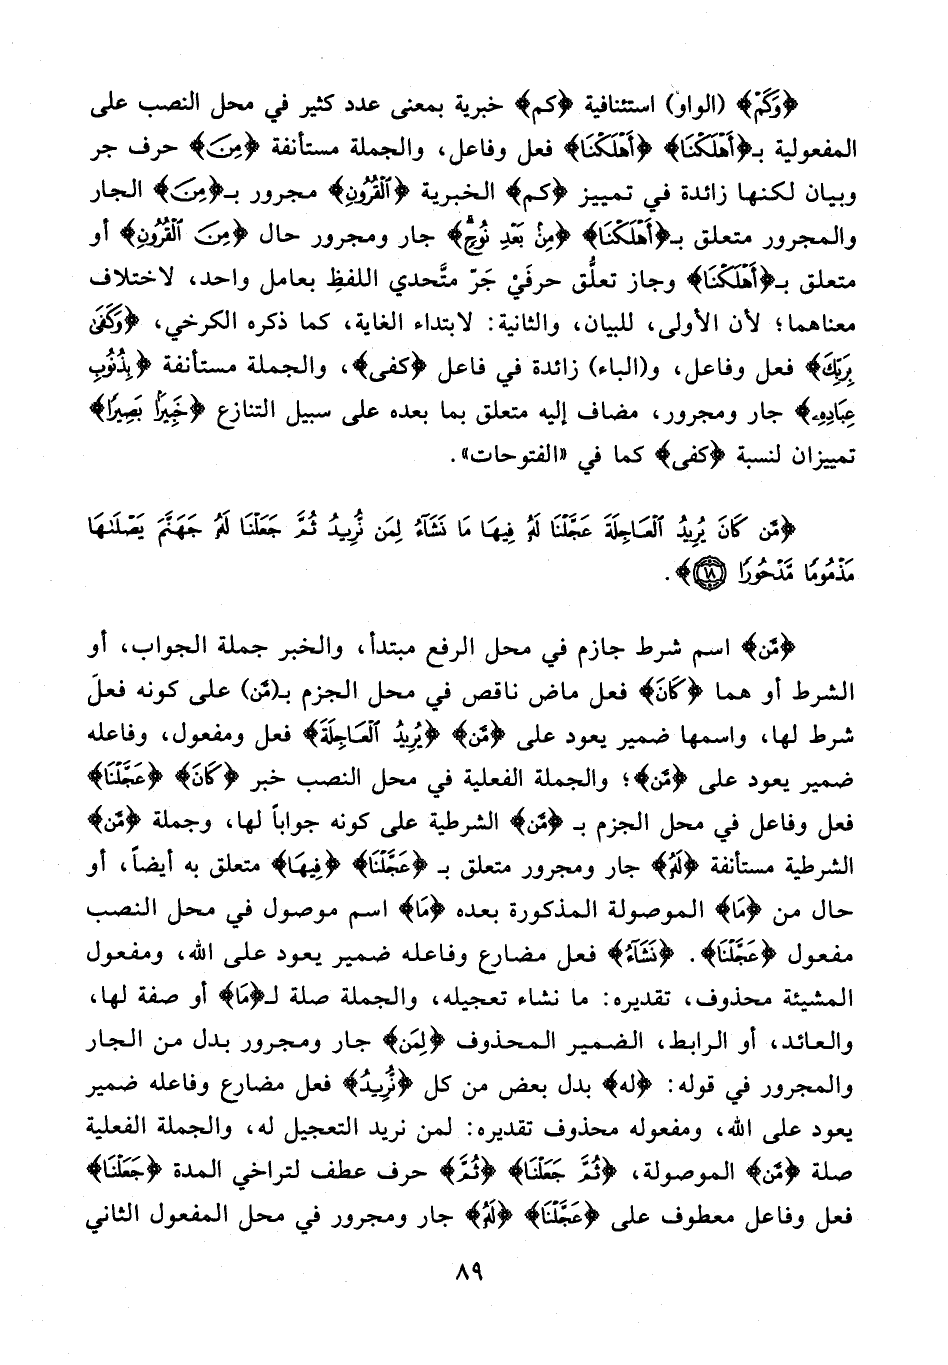 ﴿وَكَمْ﴾ (الواو) استئنافية ﴿كم﴾ خبرية بمعنى عدد كثير في محل النصب على
المفعولية بـ﴿أَهْلَكْنَا﴾ ﴿أَهْلَكْنَا﴾ فعل وفاعل، والجملة مستأنفة ﴿مِنَ﴾ حرف جر
وبيان لكنها زائدة في تمييز ﴿كم﴾ الخبرية ﴿الْقُرُونِ﴾ مجرور بـ﴿مِنَ﴾ الجار
والمجرور متعلق بـ﴿أَهْلَكْنَا﴾ ﴿مِنْ بَعْدِ نُوحٍ﴾ جار ومجرور حال ﴿مِنَ الْقُرُونِ﴾ أو
متعلق بـ﴿أَهْلَكْنَا﴾ وجاز تعلُّق حرفَيْ جَرّ متَّحدي اللفظِ بعامل واحد، لاختلاف
معناهما؛ لأن الأولى، للبيان، والثانية: لابتداء الغاية، كما ذكره الكرخي، ﴿وَكَفَى
بِرَبِّكَ﴾ فعل وفاعل، و(الباء) زائدة في فاعل ﴿كفى﴾، والجملة مستأنفة ﴿بِذُنُوبِ
عِبَادِهِ﴾ جار ومجرور، مضاف إليه متعلق بما بعده على سبيل التنازع ﴿خَبِيرًا بَصِيرًا﴾
تمييزان لنسبة ﴿كفى﴾ كما في «الفتوحات».
﴿مَّن كَانَ يُرِيدُ ٱلْعَاجِلَةَ عَجَّلْنَا لَهُۥ فِيهَا مَا نَشَآءُ لِمَن نُّرِيدُ ثُمَّ جَعَلْنَا لَهُۥ جَهَنَّمَ يَصْلَىٰهَا
مَذْمُومًا مَّدْحُورًا ١٨﴾.
﴿مَّن﴾ اسم شرط جازم في محل الرفع مبتدأ، والخبر جملة الجواب، أو
الشرط أو هما ﴿كَانَ﴾ فعل ماض ناقص في محل الجزم بـ(مَّن) على كونه فعلَ
شرط لها، واسمها ضمير يعود على ﴿مَّن﴾ ﴿يُرِيدُ ٱلْعَاجِلَةَ﴾ فعل ومفعول، وفاعله
ضمير يعود على ﴿مَّن﴾؛ والجملة الفعلية في محل النصب خبر ﴿كَانَ﴾ ﴿عَجَّلْنَا﴾
فعل وفاعل في محل الجزم بـ ﴿مَّن﴾ الشرطية على كونه جواباً لها، وجملة ﴿مَّن﴾
الشرطية مستأنفة ﴿لَهُۥ﴾ جار ومجرور متعلق بـ ﴿عَجَّلْنَا﴾ ﴿فِيهَا﴾ متعلق به أيضاً، أو
حال من ﴿مَا﴾ الموصولة المذكورة بعده ﴿مَا﴾ اسم موصول في محل النصب
مفعول ﴿عَجَّلْنَا﴾. ﴿نَشَآءُ﴾ فعل مضارع وفاعله ضمير يعود على الله، ومفعول
المشيئة محذوف، تقديره: ما نشاء تعجيله، والجملة صلة لـ﴿مَا﴾ أو صفة لها،
والعائد، أو الرابط، الضمير المحذوف ﴿لِمَن﴾ جار ومجرور بدل من الجار
والمجرور في قوله: ﴿له﴾ بدل بعض من كل ﴿نُّرِيدُ﴾ فعل مضارع وفاعله ضمير
يعود على الله، ومفعوله محذوف تقديره: لمن نريد التعجيل له، والجملة الفعلية
صلة ﴿مَّن﴾ الموصولة، ﴿ثُمَّ جَعَلْنَا﴾ ﴿ثُمَّ﴾ حرف عطف لتراخي المدة ﴿جَعَلْنَا﴾
فعل وفاعل معطوف على ﴿عَجَّلْنَا﴾ ﴿لَهُۥ﴾ جار ومجرور في محل المفعول الثاني
٨٩